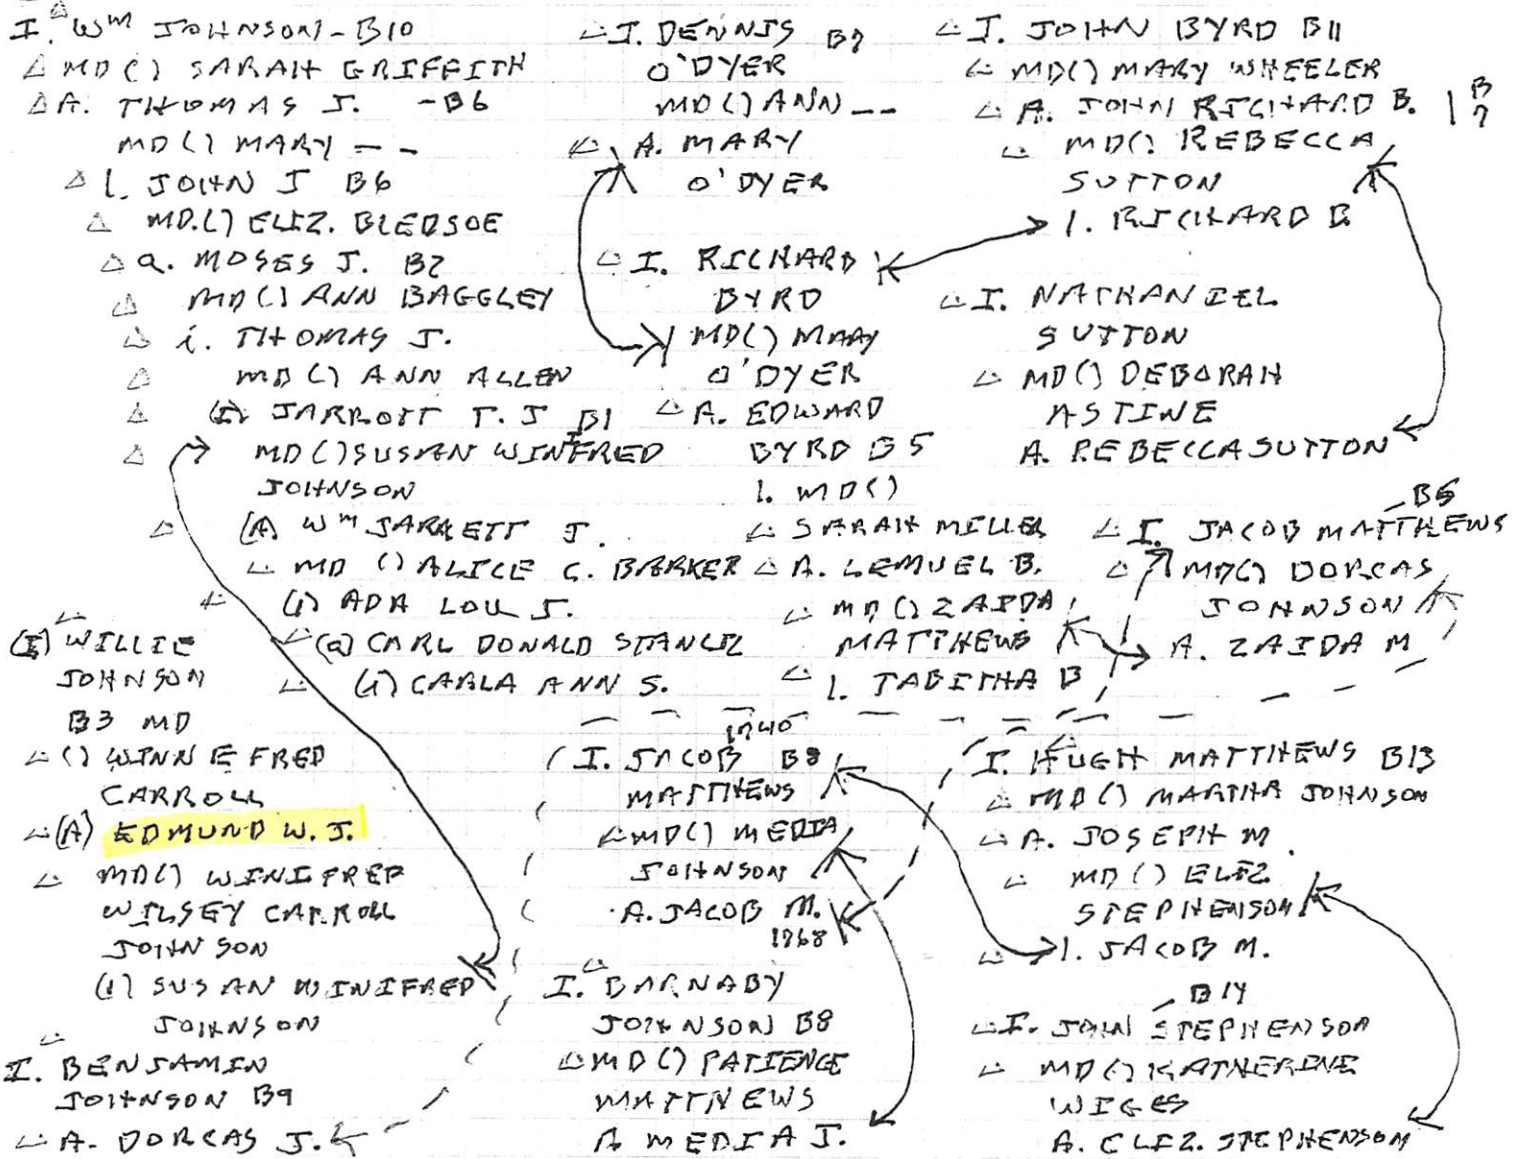 I. Wm JOHNSON - B10
MD () SARAH GRIFFITH
A. THOMAS J. - B6
MD () MARY - -
1. JOHN J B6
MD. () ELIZ. BLEDSOE
a. MOSES J. B2
MD () ANN BAGGLEY
i. THOMAS J.
MD () ANN ALLEN
(I) JARROTT T. J B1
MD () SUSAN WINIFRED
JOHNSON
(A) Wm JARRETT J.
MD () ALICE C. BARKER
(1) ADA LOU J.
(a) CARL DONALD STANCIL
(i) CARLA ANN S.
(I) WILLIE
JOHNSON
B3 MD
() WINNEFRED
CARROLL
(A) EDMUND W. J.
MD () WINIFRED
WILSEY CARROLL
JOHNSON
(1) SUSAN WINIFRED
JOHNSON
I. BENJAMIN
JOHNSON B9
A. DORCAS J.
I. DENNIS B7
O'DYER
MD () ANN - -
A. MARY
O'DYER
I. RICHARD
BYRD
MD () MARY
O'DYER
A. EDWARD
BYRD B5
1. MD ()
SARAH MILLER
A. LEMUEL B.
MD () ZAIDA
MATTHEWS
1. TABITHA B
1740
I. JACOB B8
MATTHEWS
MD () MEDIA
JOHNSON
A. JACOB M.
1768
I. BARNABY
JOHNSON B8
MD () PATIENCE
MATTHEWS
A MEDIA J.
I. JOHN BYRD B11
MD () MARY WHEELER
A. JOHN RICHARD B. B7
MD (). REBECCA
SUTTON
1. RICHARD B.
I. NATHANIEL
SUTTON
MD () DEBORAH
ASTINE
A. REBECCA SUTTON
B5
I. JACOB MATTHEWS
MD () DORCAS
JOHNSON
A. ZAIDA M
I. HUGH MATTHEWS B13
MD () MARTHA JOHNSON
A. JOSEPH M.
MD () ELIZ
STEPHENSON
1. JACOB M.
B14
I. JOHN STEPHENSON
MD () KATHERINE
WIGES
A. ELIZ. STEPHENSON